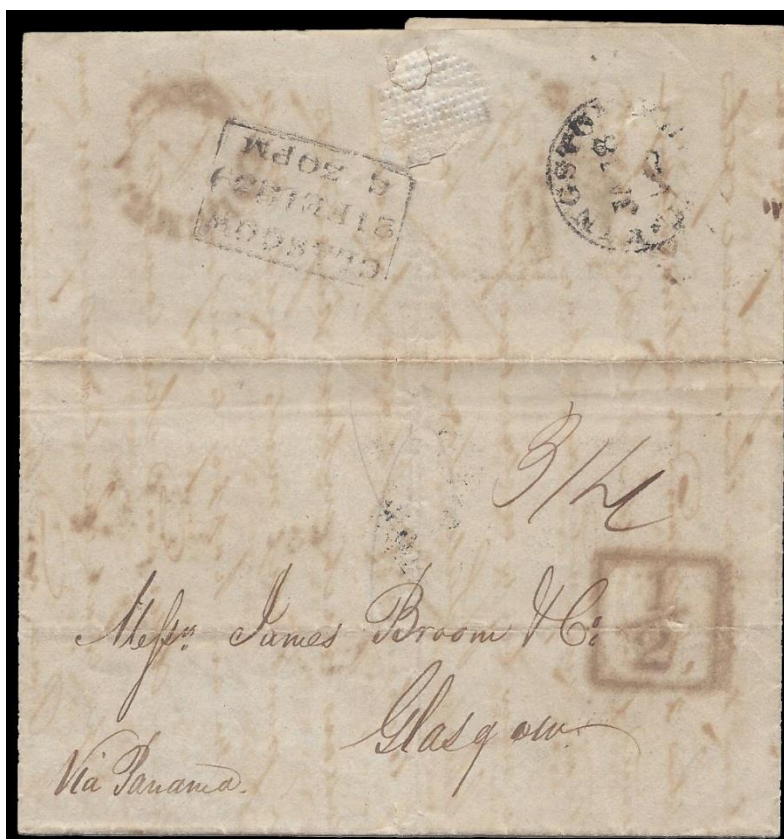 GLASGOW
30PM
KINGSTO
3/4
1
2
Messrs. James Broom & Co:
Glasgow.
Via Panama.